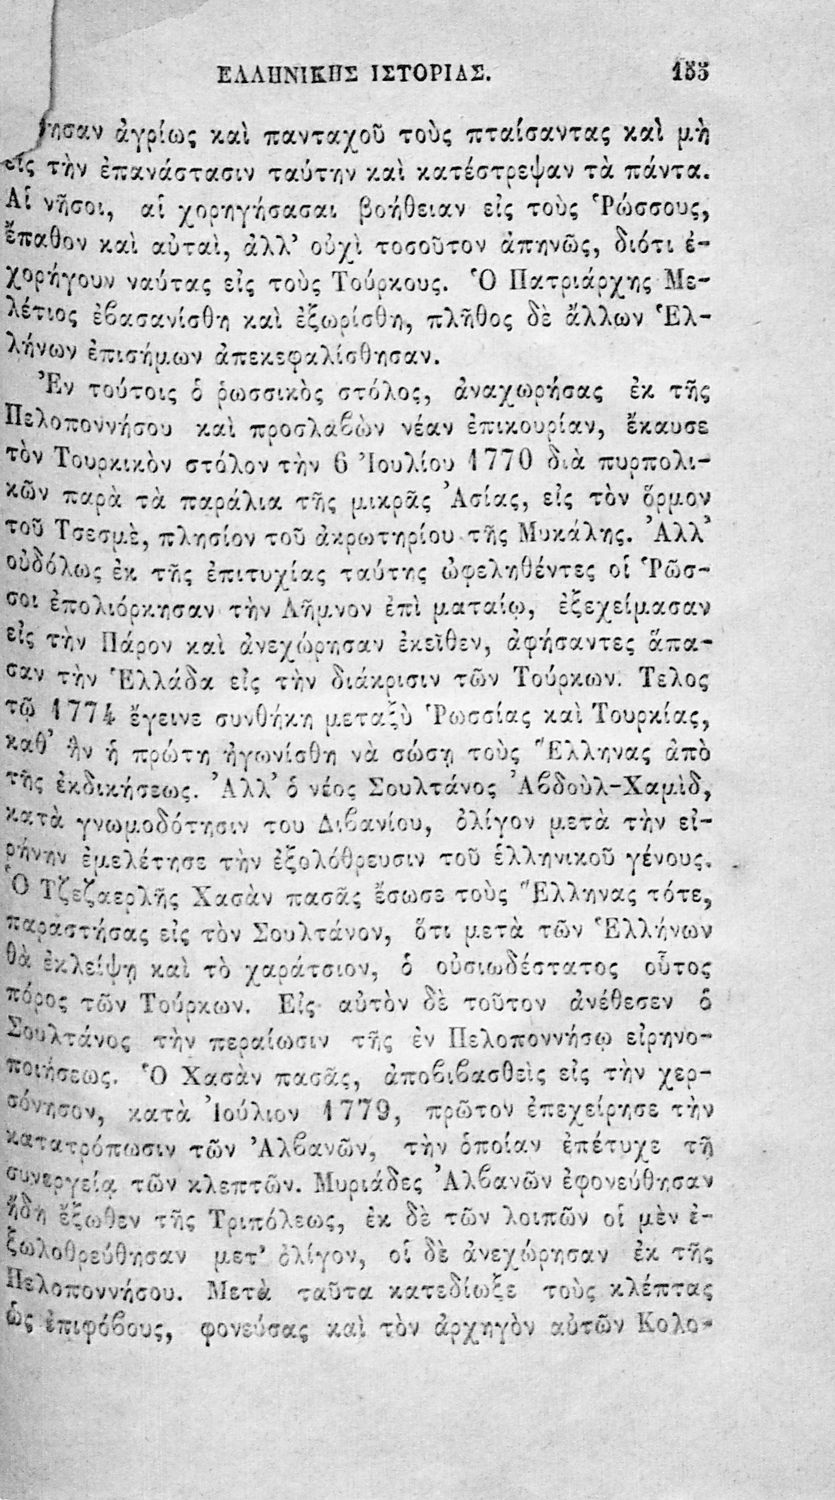 ΕΛΛΗΝΙΚΗΣ ΙΣΤΟΡΙΑΣ. 155
ἀγρίως καὶ πανταχοῦ τοὺς πταίσαντας καὶ μὴ
εἰς τὴν ἐπανάστασιν ταύτην καὶ κατέστρεψαν τὰ πάντα.
Αἱ νῆσοι, αἱ χορηγήσασαι βοήθειαν εἰς τοὺς Ῥώσσους,
ἔπαθον καὶ αὐταὶ, ἀλλ’ οὐχὶ τοσοῦτον ἀπηνῶς, διότι ἐ-
χορήγουν ναύτας εἰς τοὺς Τούρκους. Ὁ Πατριάρχης Με-
λέτιος ἐβασανίσθη καὶ ἐξωρίσθη, πλῆθος δὲ ἄλλων Ἑλ-
λήνων ἐπισήμων ἀπεκεφαλίσθησαν.
Ἐν τούτοις ὁ ῥωσσικὸς στόλος, ἀναχωρήσας ἐκ τῆς
Πελοποννήσου καὶ προσλαβὼν νέαν ἐπικουρίαν, ἔκαυσε
τὸν Τουρκικὸν στόλον τὴν 6 Ἰουλίου 1770 διὰ πυρπολι-
κῶν παρὰ τὰ παράλια τῆς μικρᾶς Ἀσίας, εἰς τὸν ὅρμον
τοῦ Τσεσμὲ, πλησίον τοῦ ἀκρωτηρίου τῆς Μυκάλης. Ἀλλ’
οὐδόλως ἐκ τῆς ἐπιτυχίας ταύτης ὠφεληθέντες οἱ Ῥῶσ-
σοι ἐπολιόρκησαν τὴν Λῆμνον ἐπὶ ματαίῳ, ἐξεχείμασαν
εἰς τὴν Πάρον καὶ ἀνεχώρησαν ἐκεῖθεν, ἀφήσαντες ἅπα-
σαν τὴν Ἑλλάδα εἰς τὴν διάκρισιν τῶν Τούρκων. Τελος
τῷ 1774 ἔγεινε συνθήκη μεταξὺ Ῥωσσίας καὶ Τουρκίας,
καθ’ ἣν ἡ πρώτη ἠγωνίσθη νὰ σώσῃ τοὺς Ἕλληνας ἀπὸ
τῆς ἐκδικήσεως. Ἀλλ’ ὁ νέος Σουλτάνος Ἀβδοὺλ-Χαμὶδ,
κατὰ γνωμοδότησιν του Διβανίου, ὀλίγον μετὰ τὴν εἰ-
ρήνην ἐμελέτησε τὴν ἐξολόθρευσιν τοῦ ἑλληνικοῦ γένους.
Ὁ Τζεζαερλῆς Χασὰν πασᾶς ἔσωσε τοὺς Ἕλληνας τότε,
παραστήσας εἰς τὸν Σουλτάνον, ὅτι μετὰ τῶν Ἑλλήνων
θὰ ἐκλείψῃ καὶ τὸ χαράτσιον, ὁ οὐσιωδέστατος οὗτος
πόρος τῶν Τούρκων. Εἰς αὐτὸν δὲ τοῦτον ἀνέθεσεν ὁ
Σουλτάνος τὴν περαίωσιν τῆς ἐν Πελοποννήσῳ εἰρηνο-
ποιήσεως. Ὁ Χασὰν πασᾶς, ἀποβιβασθεὶς εἰς τὴν χερ-
σόνησον, κατὰ Ἰούλιον 1779, πρῶτον ἐπεχείρησε τὴν
κατατρόπωσιν τῶν Ἀλβανῶν, τὴν ὁποίαν ἐπέτυχε τῇ
συνεργείᾳ τῶν κλεπτῶν. Μυριάδες Ἀλβανῶν ἐφονεύθησαν
ἤδη ἔξωθεν τῆς Τριπόλεως, ἐκ δὲ τῶν λοιπῶν οἱ μὲν ἐ-
ξωλοθρεύθησαν μετ’ ὀλίγον, οἱ δὲ ἀνεχώρησαν ἐκ τῆς
Πελοποννήσου. Μετὰ ταῦτα κατεδίωξε τοὺς κλέπτας
ὡς ἐπιφόβους, φονεύσας καὶ τὸν ἀρχηγὸν αὐτῶν Κολο-